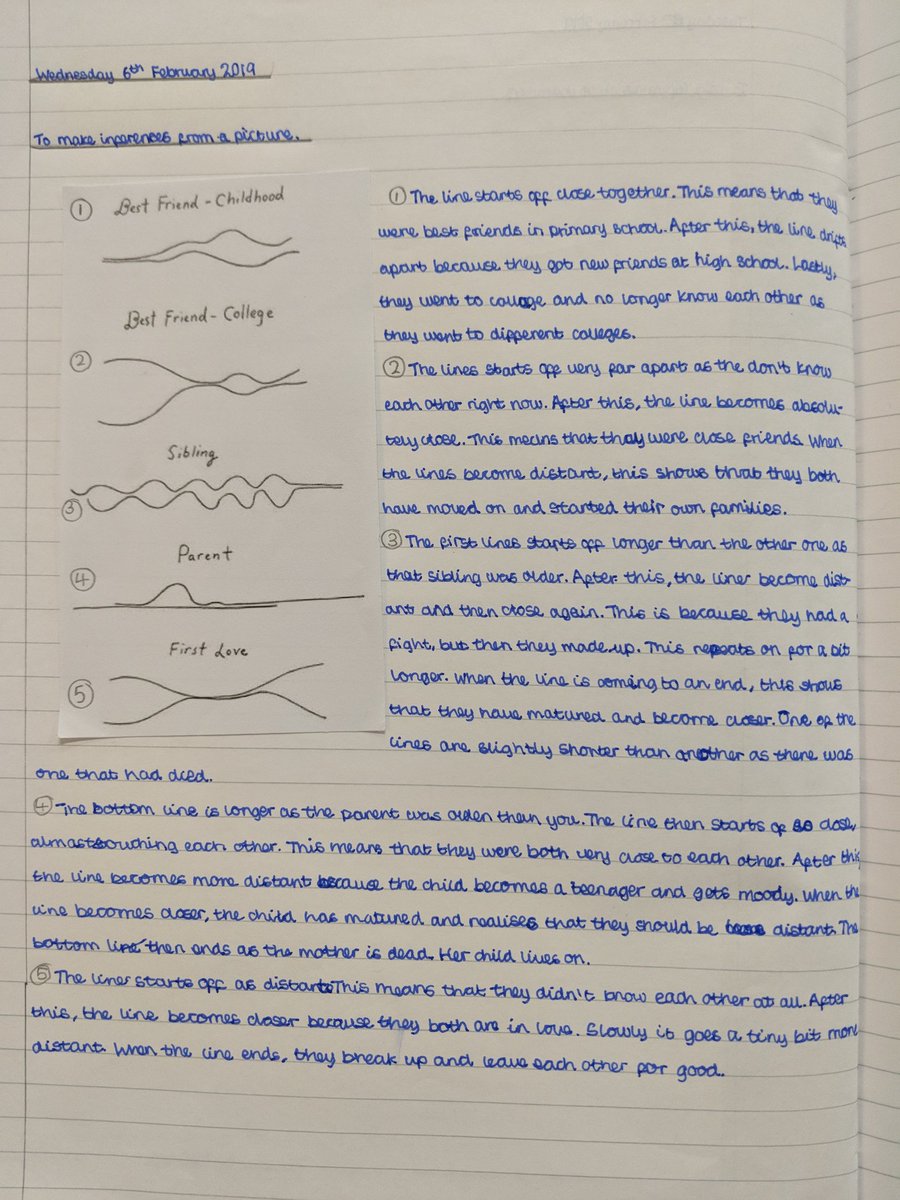 Wednesday 6th February 2019
To make inferences from a picture.
① Best Friend - Childhood
Best Friend - College
②
Sibling
③
Parent
④
First Love
⑤
① The line starts off close together. This means that they
were best friends in primary school. After this, the line drifts
apart because they got new friends at high school. Lastly,
they went to college and no longer know each other as
they went to different colleges.
② The lines starts off very far apart as the don't know
each other right now. After this, the line becomes absolu-
tely close. This means that they were close friends. When
the lines become distant, this shows that they both
have moved on and started their own families.
③ The first lines starts off longer than the other one as
that sibling was older. After this, the lines become dist
ant and then close again. This is because they had a
fight, but then they made up. This repeats on for a bit
longer. When the line is coming to an end, this shows
that they have matured and become closer. One of the
lines are slightly shorter than another as there was
one that had died.
④ The bottom line is longer as the parent was older than you. The line then starts of so close,
almost touching each other. This means that they were both very close to each other. After this
the line becomes more distant because the child becomes a teenager and gets moody. When the
line becomes closer, the child has matured and realises that they should be distant. The
bottom line then ends as the mother is dead. Her child lives on.
⑤ The lines starts off as distant. This means that they didn't know each other at all. After
this, the line becomes closer because they both are in love. Slowly it goes a tiny bit more
distant. When the line ends, they break up and leave each other for good.